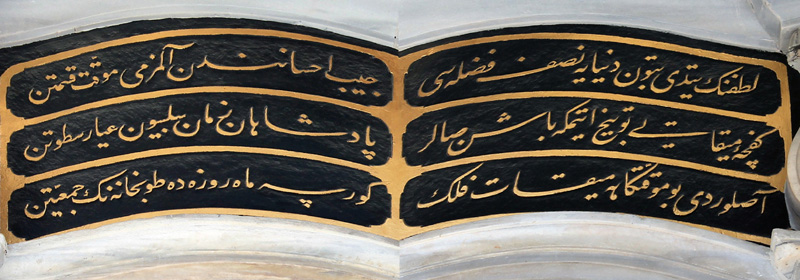 لطفنك يتدی بتون دنيايه نصف فضله سی
جيب احسانندن آلمزمی موقت قسمتن
توبيخ ايتمكه باشن صالر
پادشاهان زمان بيلسون عيار سطوتن
آصلوردی بو موقتگاهه ميقات فلك
كورسه ماه روزه ده طوبخانه نك جمعيتن